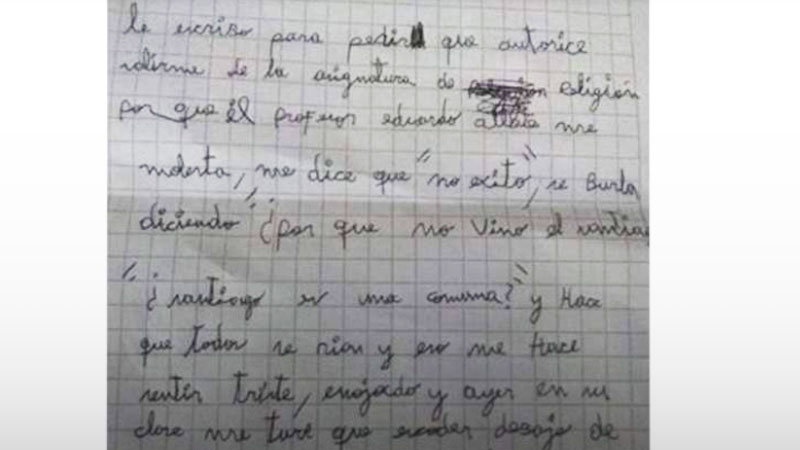 le escribo para pedir que autorice
salirme de la asignatura de religión
por que él profesor eduardo me
molesta, me dice que "no exito", se Burla
diciendo "¿por que no vino el santiago
"¿santiago es una comuna?" y Hace
que todos se rian y eso me Hace
sentir triste, enojado y ayer en su
clase me tuve que esconder debajo de